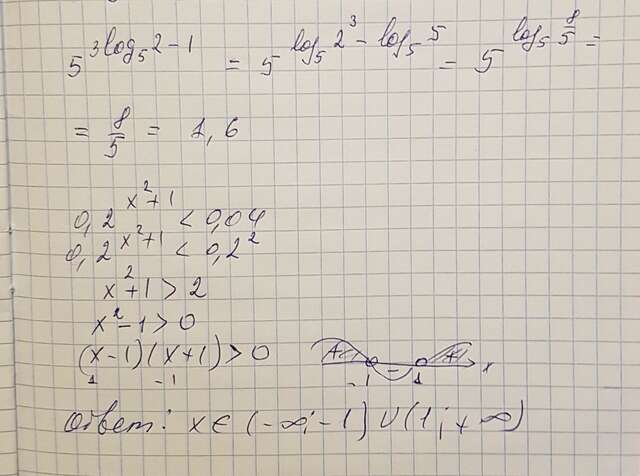 5^{3log_5 2-1} = 5^{log_5 2^3 - log_5 5} = 5^{log_5 \frac{8}{5}} =
= \frac{8}{5} = 1,6
0,2^{x^2+1} < 0,04
0,2^{x^2+1} < 0,2^2
x^2+1 > 2
x^2-1 > 0
(x-1)(x+1) > 0 + - + x
1 -1 -1 1
Ответ: x∈(-∞;-1)∪(1;+∞)